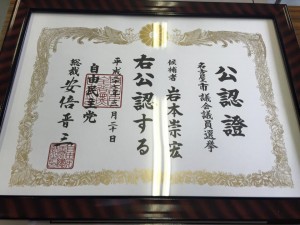 公認證
名古屋市議会議員選挙
候補者 岩本崇宏
右公認する
平成二十七年三月二十日
自由民主党
総裁 安倍晋三